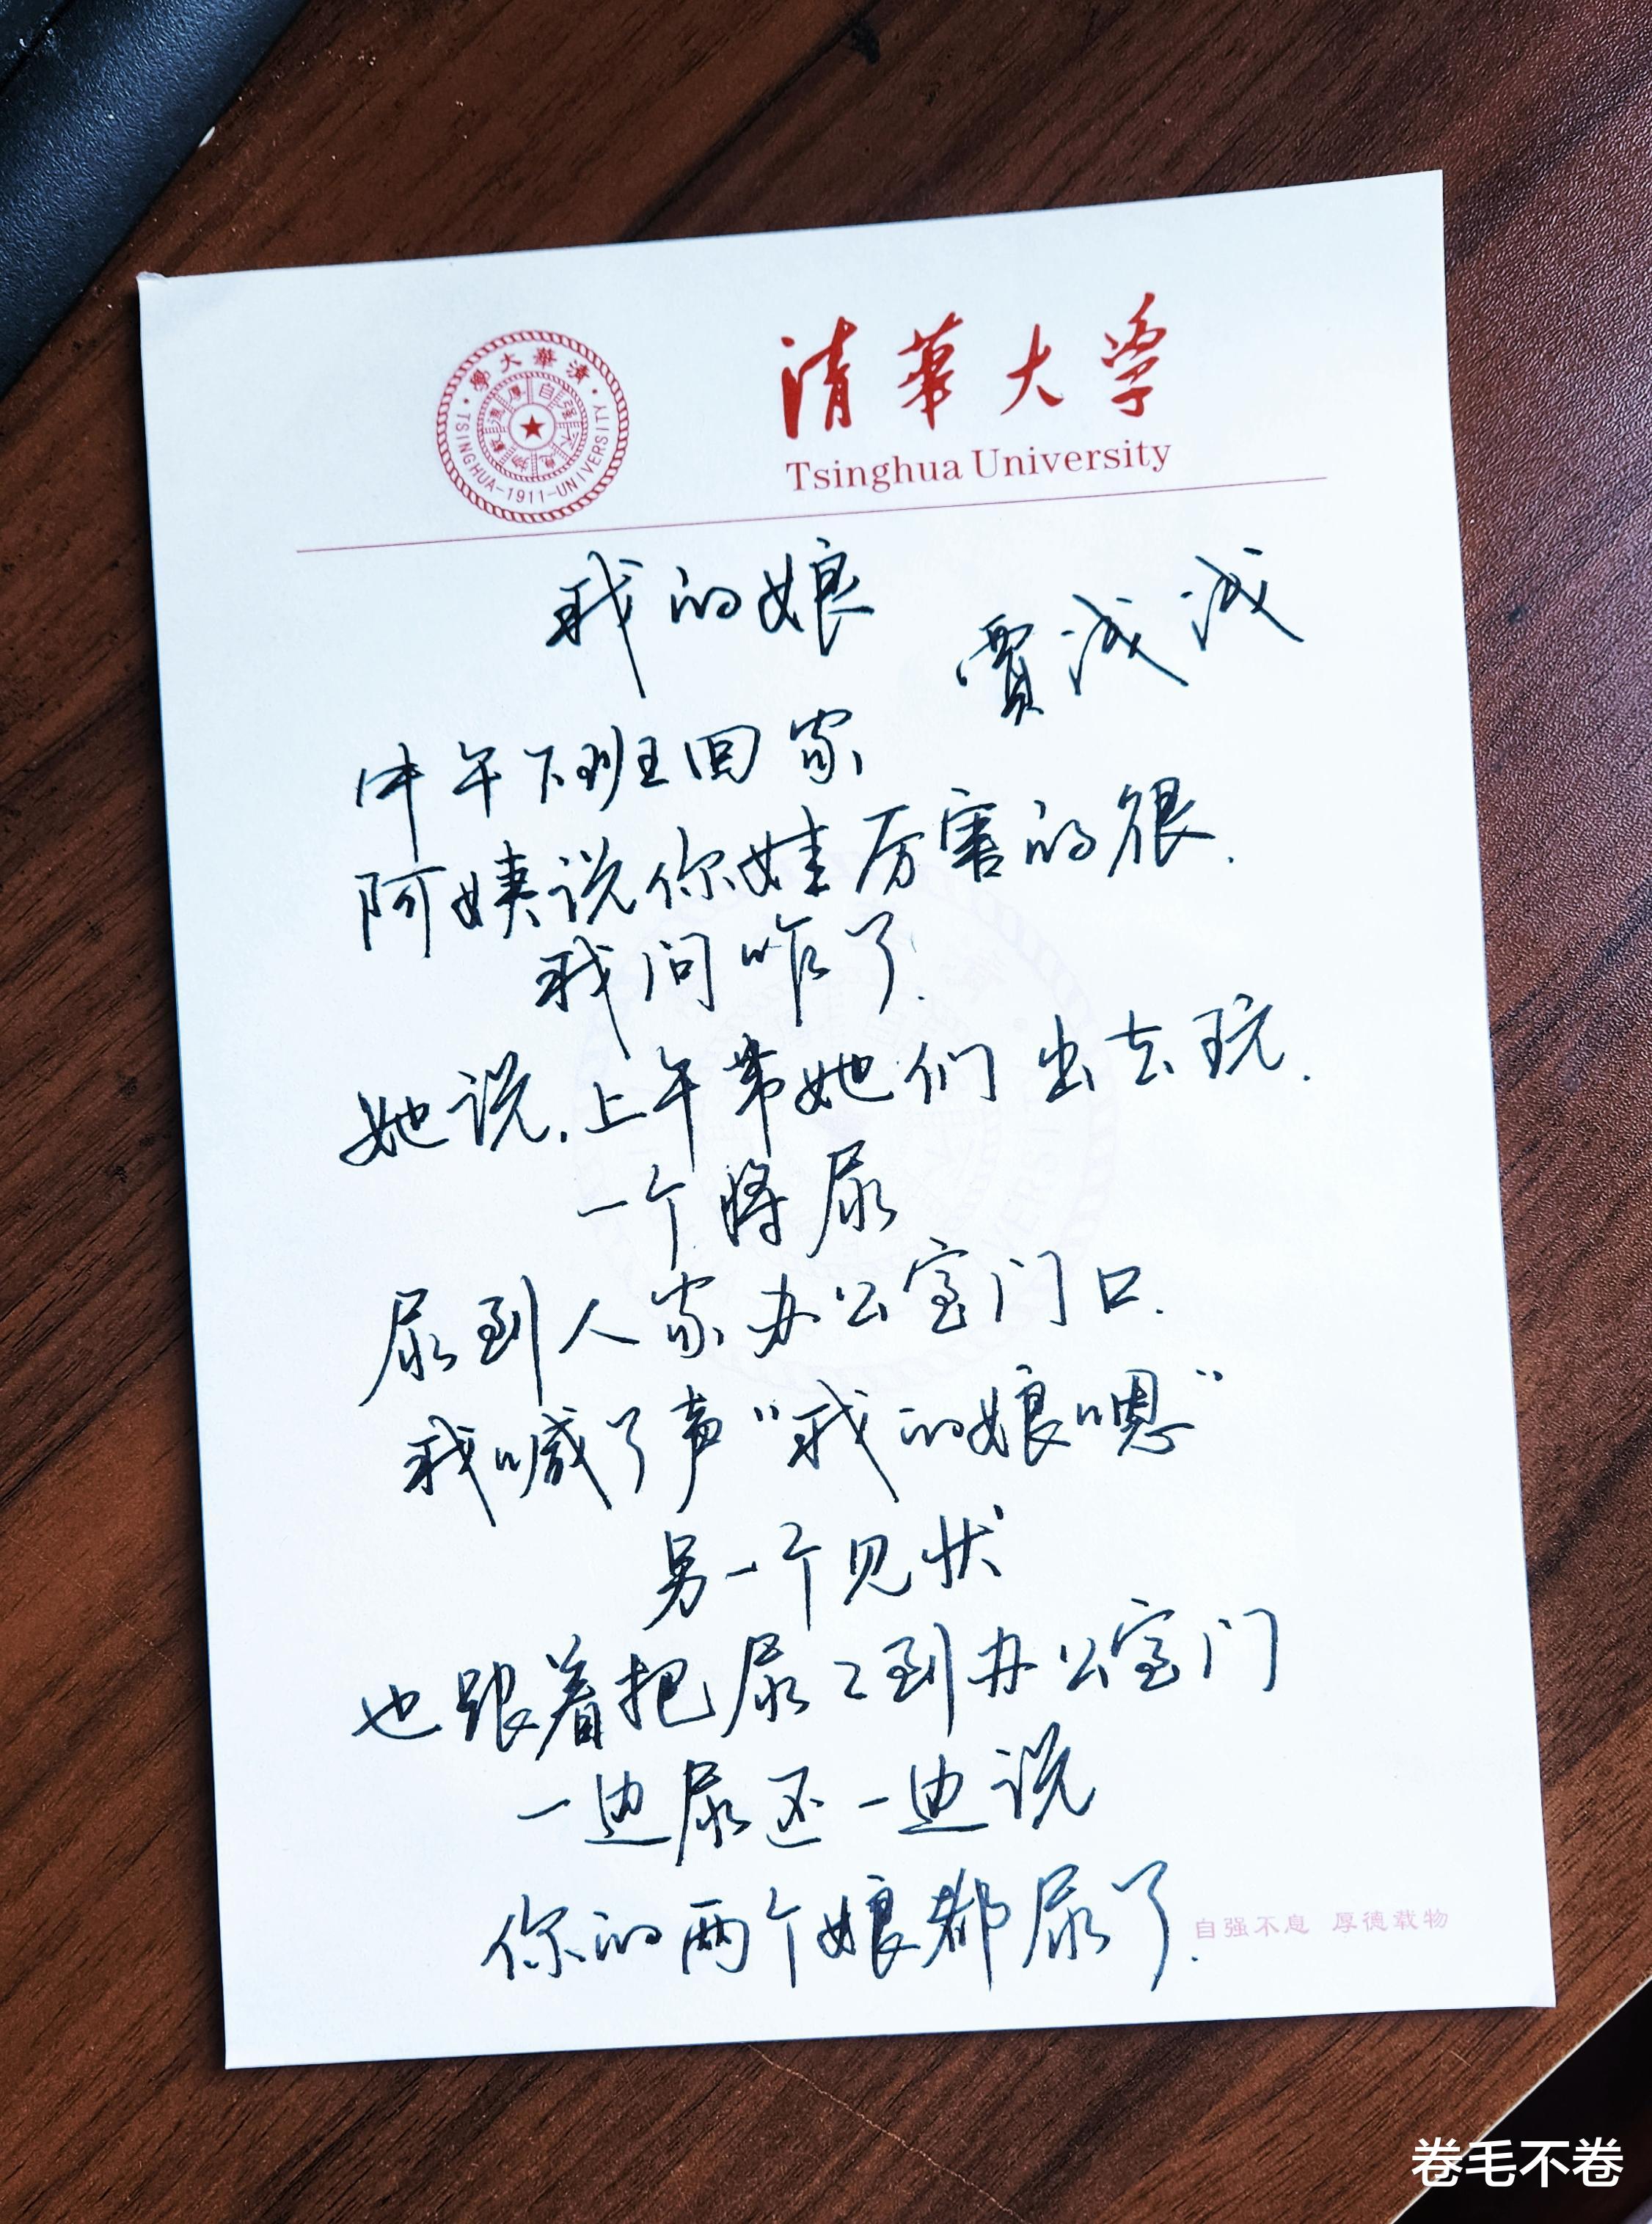 清華大學
TSINGHUA-1911-UNIVERSITY
自强不息
厚德載物
清华大学
Tsinghua University
我的娘
贾浅浅
中午下班回家
阿姨说你娃厉害的很.
我问咋了.
她说.上午带她们出去玩.
一个将尿
尿到人家办公室门口.
我喊了声“我的娘嗯”
另一个见状
也跟着把尿尿到办公室门
一边尿还一边说
你的两个娘都尿了.
自强不息 厚德载物
卷毛不卷